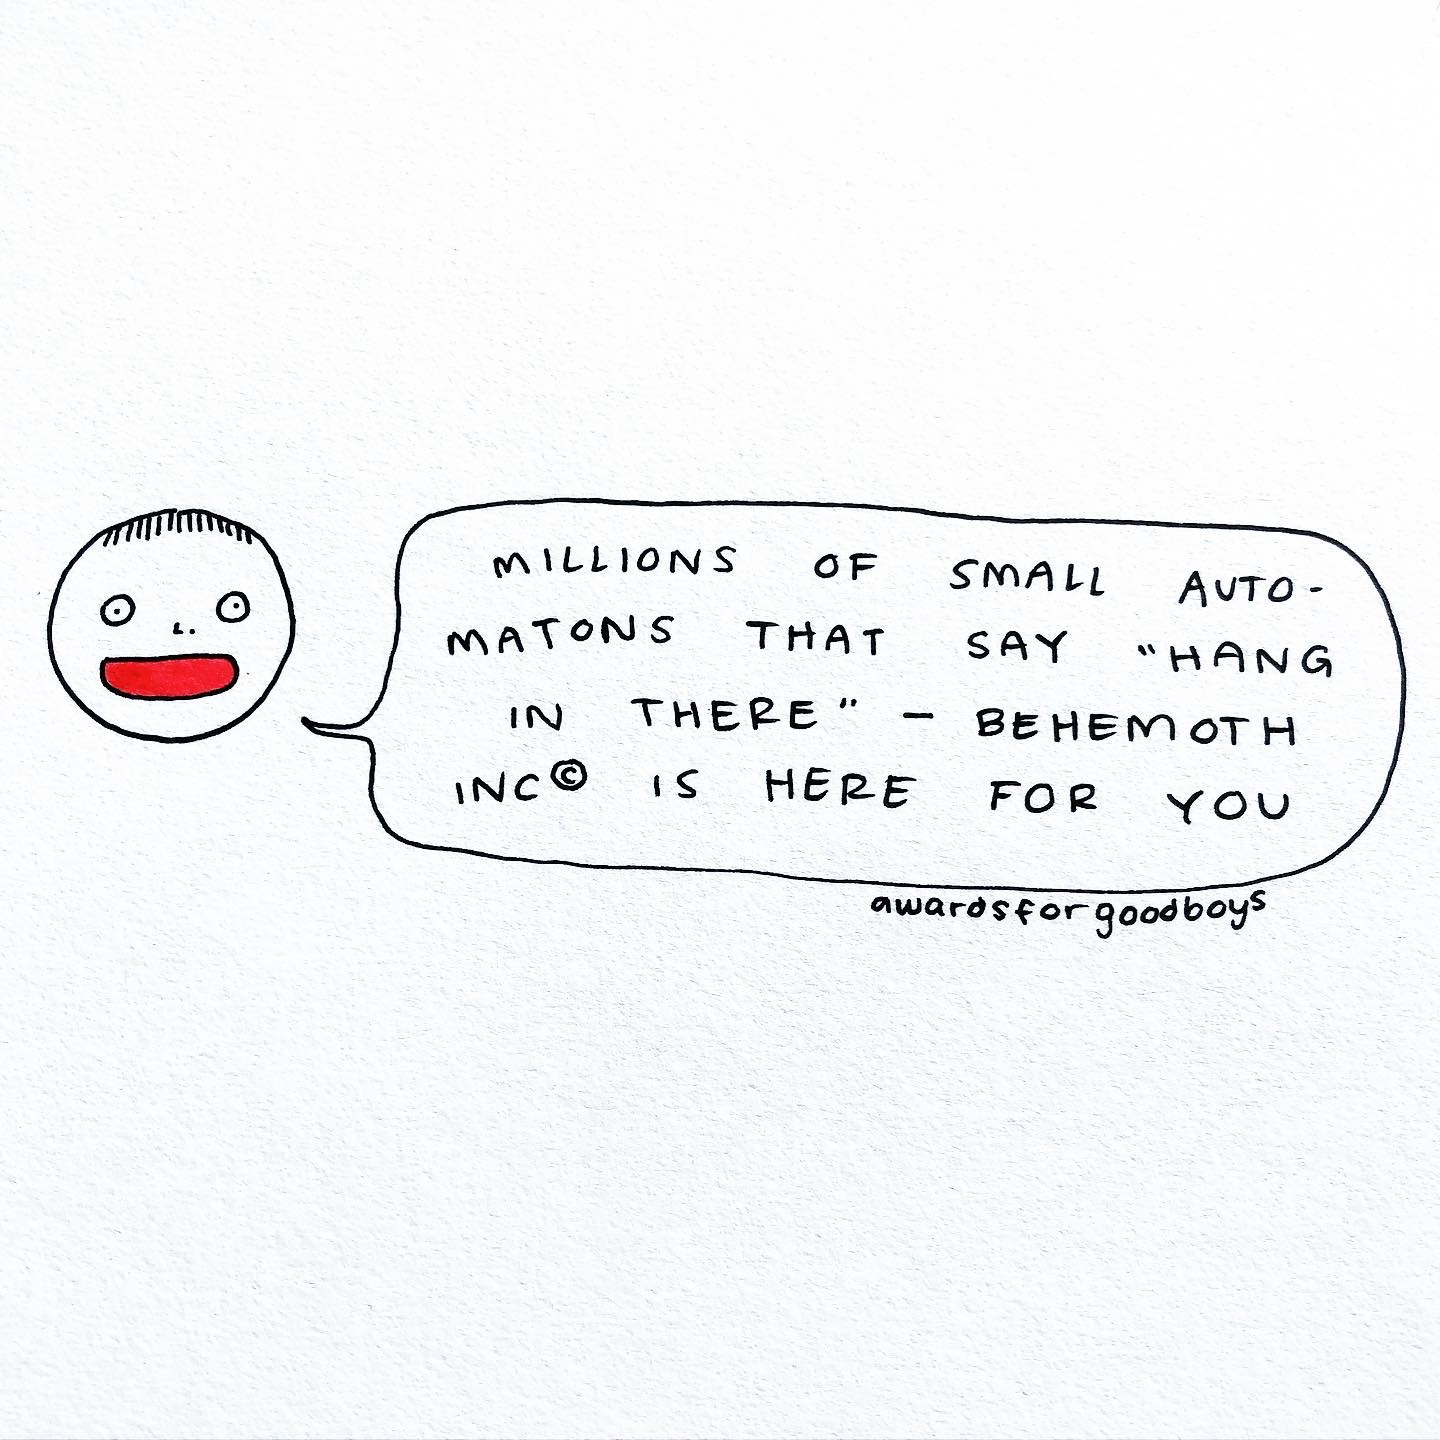 MILLIONS OF SMALL AUTO-
MATONS THAT SAY "HANG
IN THERE" - BEHEMOTH
INC© IS HERE FOR YOU
awardsforgoodboys